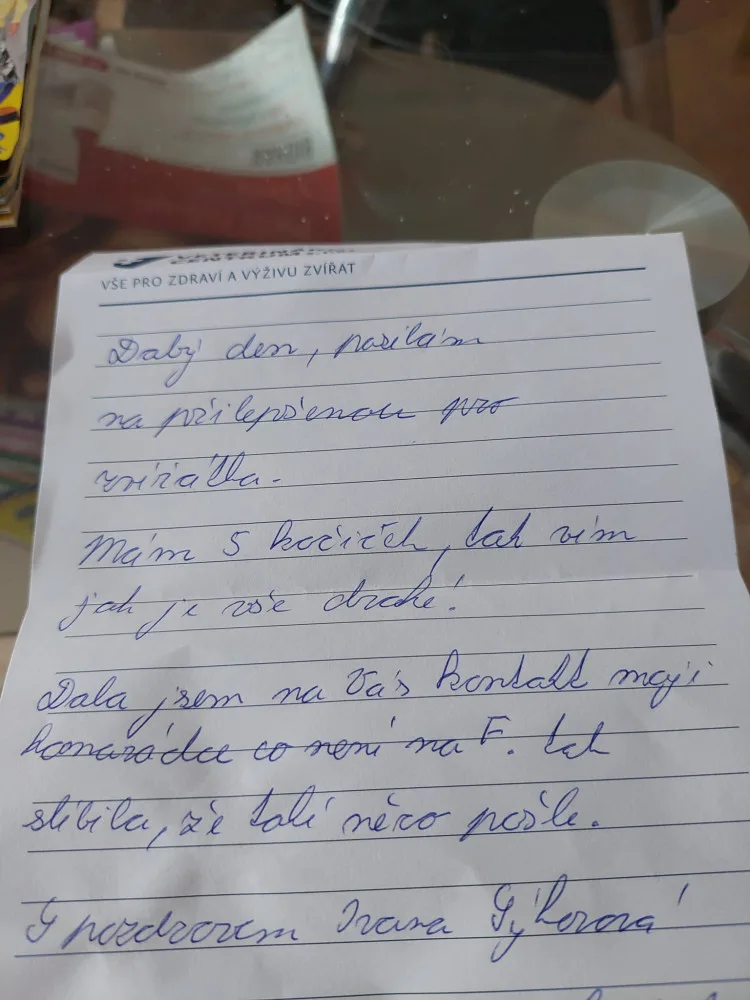 VŠE PRO ZDRAVÍ A VÝŽIVU ZVÍŘAT
Dobrý den, posílám
na přilepšenou pro
zvířátka.
Mám 5 kočiček, tak vím
jak je vše drahé!
Dala jsem na Vás kontakt mojí
kamarádce co není na F. tak
slíbila, že také něco pošle.
S pozdravem Ivana Sýkorová